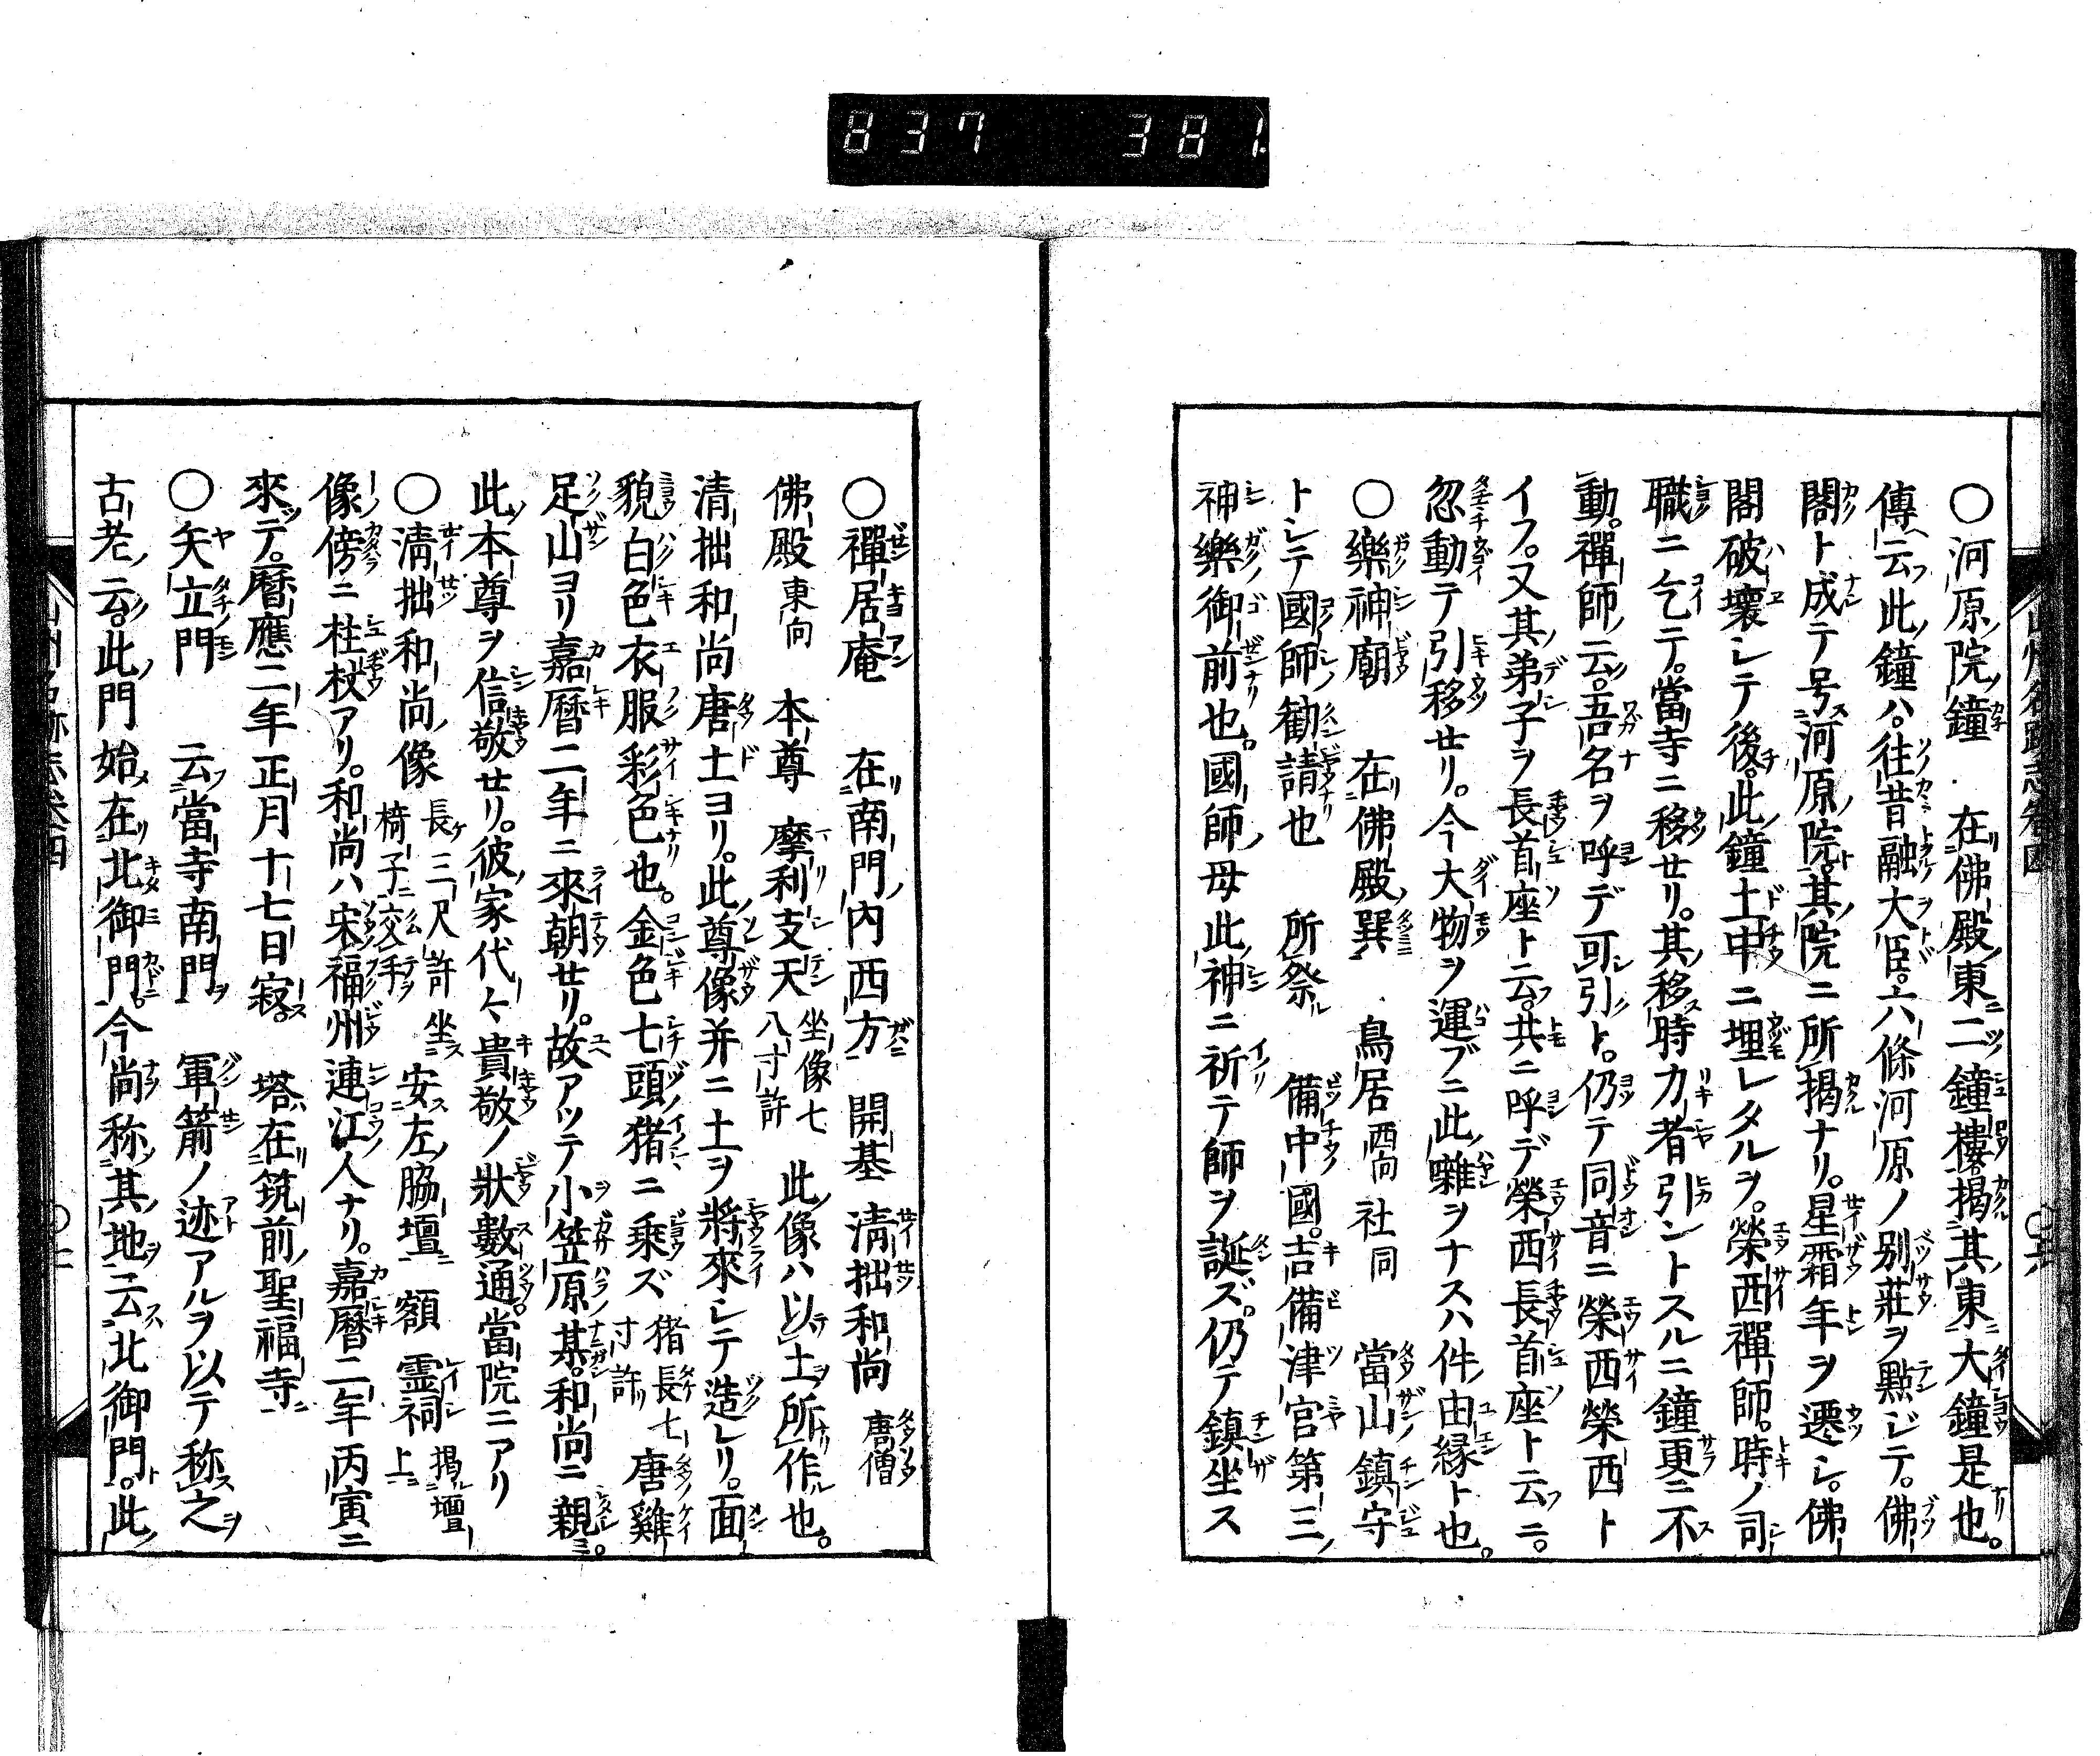 837 381
〇河原院鐘 在佛殿東二鐘樓揭其東大鐘是也。
傳云此鐘ハ。往昔融大臣。六條河原ノ別莊ヲ點ジテ。佛
閣ト成テ号河原院。其院ニ所揭ナリ。星霜年ヲ遷シ。佛
閣破壞シテ後。此鐘土中ニ埋レタルヲ。榮西禪師。時ノ司
職ニ乞テ。當寺ニ移セリ。其移時力者引ントスルニ鐘更ニ不
動。禪師云。吾名ヲ呼デ可引ト。仍テ同音ニ榮西榮西ト
イフ。又其弟子ヲ長首座ト云。共ニ呼デ榮西長首座ト云ニ。
忽動テ引移セリ。今大物ヲ運ブニ此囃ヲナスハ件由縁ト也。
〇樂神廟 在佛殿巽 鳥居西向 社同 當山鎮守
トシテ國師勸請也 所祭 備中國。吉備津宮第三
神樂御前也。國師母此神ニ祈テ師ヲ誕ズ。仍テ鎮坐ス
〇禪居庵 在南門內西方 開基 清拙和尚 唐僧
佛殿東向 本尊 摩利支天 坐像七八寸許 此像ハ以土所作也。
清拙和尚唐土ヨリ。此尊像并ニ土ヲ將來シテ造レリ。面
貌白色衣服彩色也。金色七頭猪ニ乗ズ 猪長七寸許 唐雞
足山ヨリ嘉曆二年ニ來朝セリ。故アッテ小笠原某。和尚ニ親ミ。
此本尊ヲ信敬セリ。彼家代々貴敬ノ狀數通。當院ニアリ
〇淸拙和尚像 長三尺許 坐椅子ニ交手 安左脇壇 額 霊祠 揭壇上
像傍ニ柱杖アリ。和尚ハ宋福州連江人ナリ。嘉曆二年丙寅ニ
來テ。曆應二年正月十七日寂。 塔在筑前聖福寺
〇矢立門 云當寺南門 軍箭ノ迹アルヲ以テ称之
古老云。此門始在北御門。今尚称其地云北御門。此